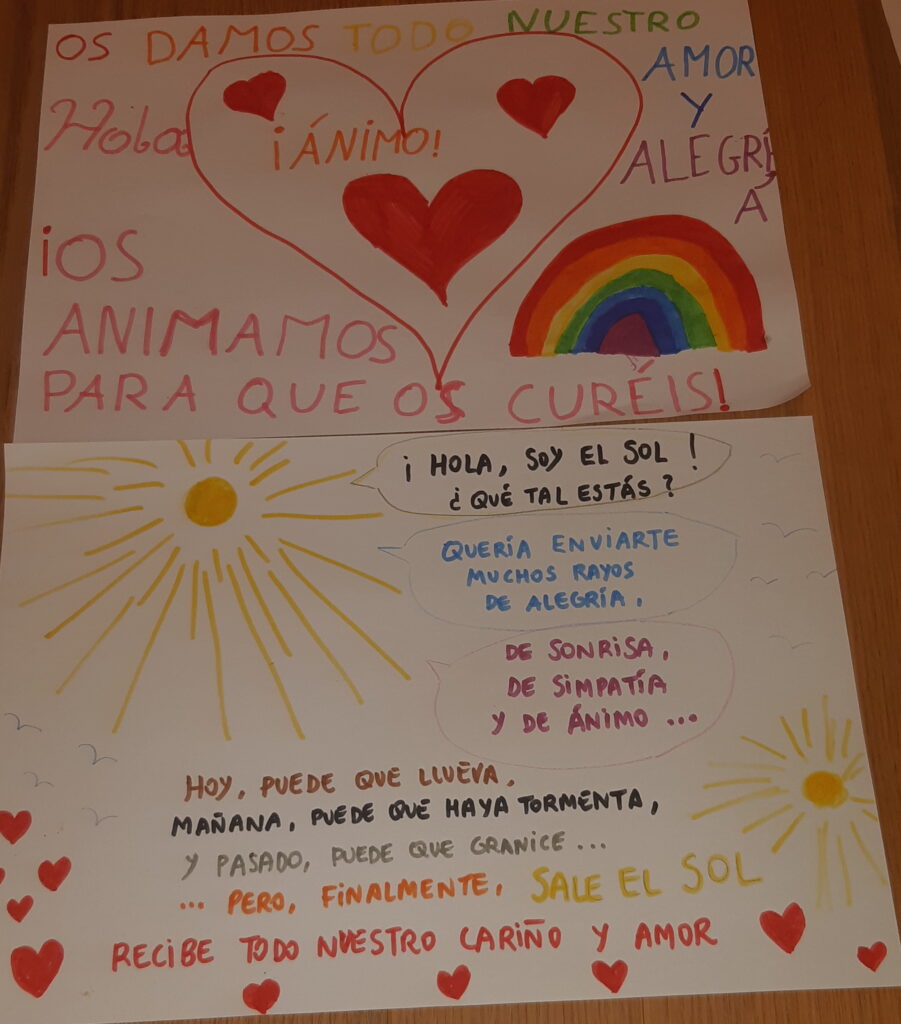 OS DAMOS TODO NUESTRO
AMOR
Y
ALEGRÍ
A
Hola
¡ÁNIMO!
¡OS
ANIMAMOS
PARA QUE OS CURÉIS!
¡HOLA, SOY EL SOL!
¿QUÉ TAL ESTÁS?
QUERÍA ENVIARTE
MUCHOS RAYOS
DE ALEGRÍA,
DE SONRISA,
DE SIMPATÍA
Y DE ÁNIMO ...
HOY, PUEDE QUE LLUEVA,
MAÑANA, PUEDE QUE HAYA TORMENTA,
Y PASADO, PUEDE QUE GRANICE ...
... PERO, FINALMENTE, SALE EL SOL
RECIBE TODO NUESTRO CARIÑO Y AMOR